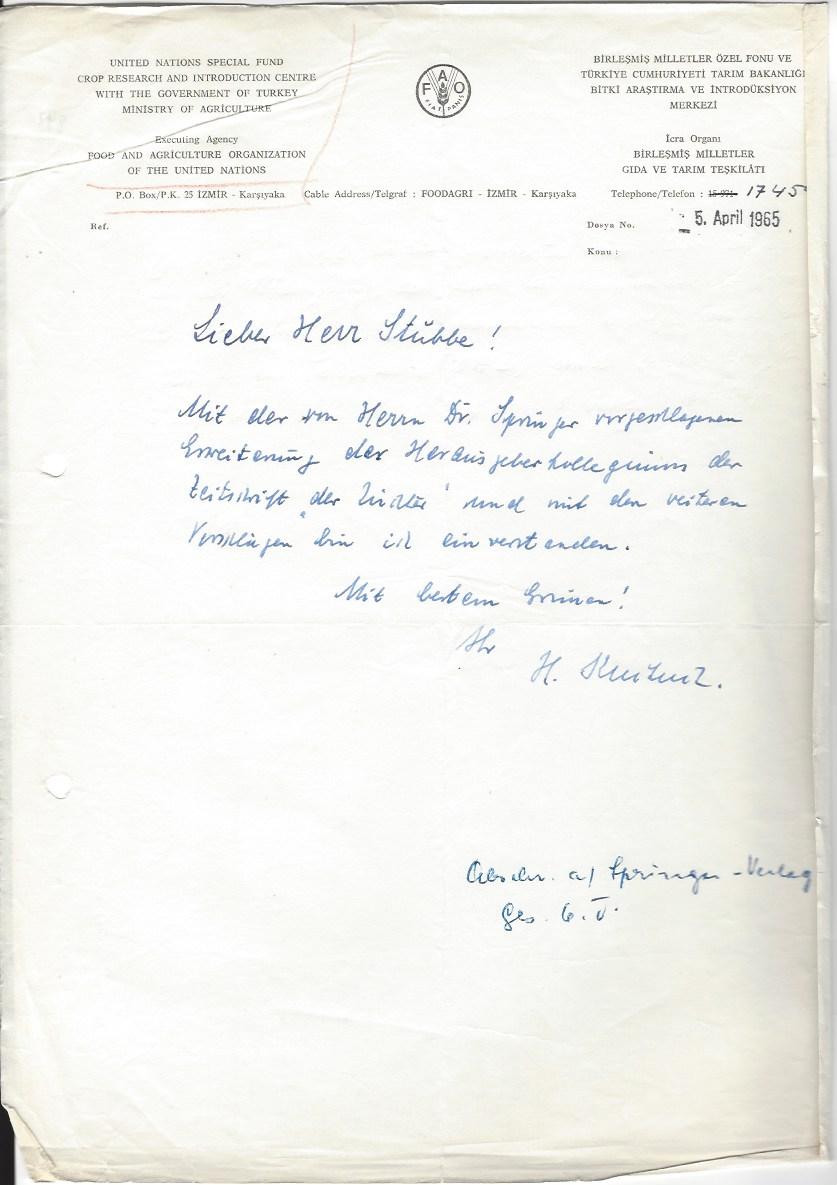 UNITED NATIONS SPECIAL FUND
CROP RESEARCH AND INTRODUCTION CENTRE
WITH THE GOVERNMENT OF TURKEY
MINISTRY OF AGRICULTURE
Executing Agency
FOOD AND AGRICULTURE ORGANIZATION
OF THE UNITED NATIONS
F A O
FIAT PANIS
BİRLEŞMİŞ MİLLETLER ÖZEL FONU VE
TÜRKİYE CUMHURİYETİ TARIM BAKANLIĞI
BİTKİ ARAŞTIRMA VE İNTRODÜKSİYON
MERKEZİ
İcra Organı
BİRLEŞMİŞ MİLLETLER
GIDA VE TARIM TEŞKİLÂTI
P.O. Box/P.K. 25 İZMİR - Karşıyaka Cable Address/Telgraf : FOODAGRI - İZMİR - Karşıyaka Telephone/Telefon : 1745
Ref.
Dosya No. 5. April 1965
Konu :
Lieber Herr Stubbe!
Mit der von Herrn Dr. Springer vorgeschlagenen
Erweiterung des Herausgeberkollegiums der
Zeitschrift „der Züchter" und mit den weiteren
Vorschlägen bin ich einverstanden.
Mit bestem Grüssen!
Ihr
H.
Abschr. a/ Springer-Verlag
Ges. 6. V.